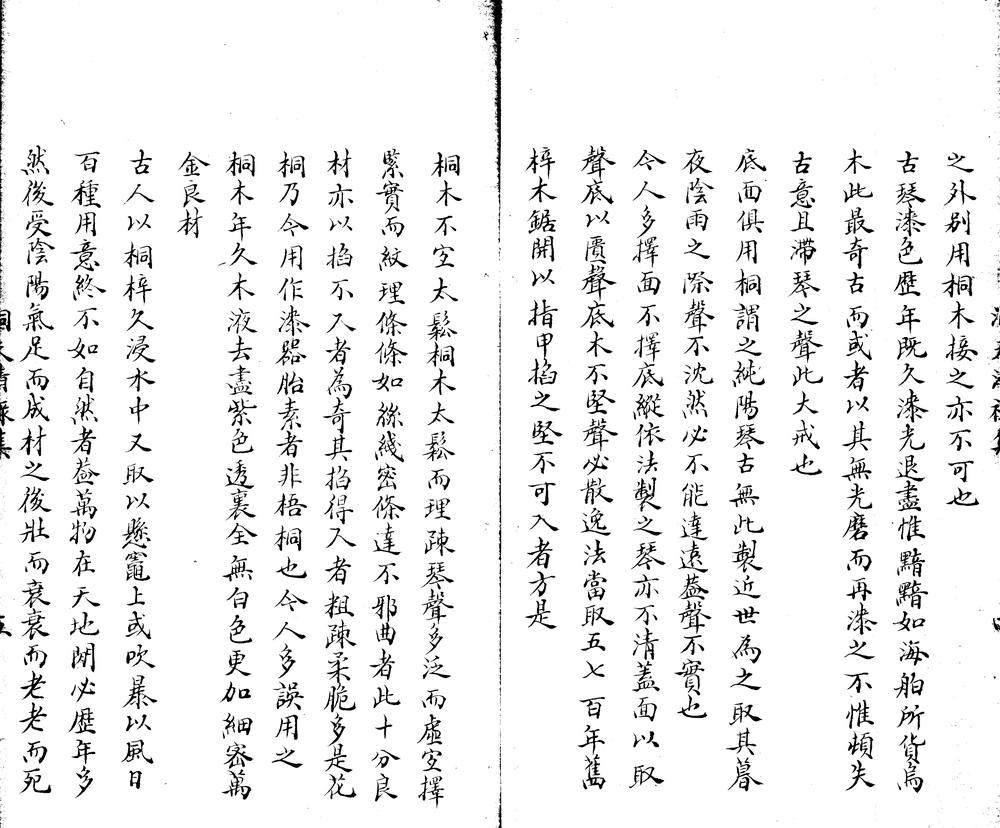 之外别用桐木接之亦不可也
古琴漆色歷年既久漆光退盡惟黯黯如海舶所貨烏
木此最奇古而或者以其無光磨而再漆之不惟頓失
古意且滯琴之聲此大戒也
底面俱用桐謂之純陽琴古無此製近世為之取其暮
夜陰雨之際聲不沈然必不能達遠葢聲不實也
今人多擇面不擇底縱依法製之琴亦不清蓋面以取
聲底以匱聲底木不堅聲必散逸法當取五七百年舊
梓木鋸開以指甲掐之堅不可入者方是
桐木不宜太鬆桐木太鬆而理疎琴聲多泛而虛宜擇
緊實而紋理條條如絲綫密條達不邪曲者此十分良
材亦以掐不入者為奇其掐得入者粗疎柔脆多是花
桐乃今用作漆器胎素者非梧桐也今人多誤用之
桐木年久木液去盡紫色透裏全無白色更加細密萬
金良材
古人以桐梓久浸水中又取以懸竈上或吹暴以風日
百種用意終不如自然者葢萬物在天地閒必歷年多
然後受陰陽氣足而成材之後壯而衰衰而老老而死